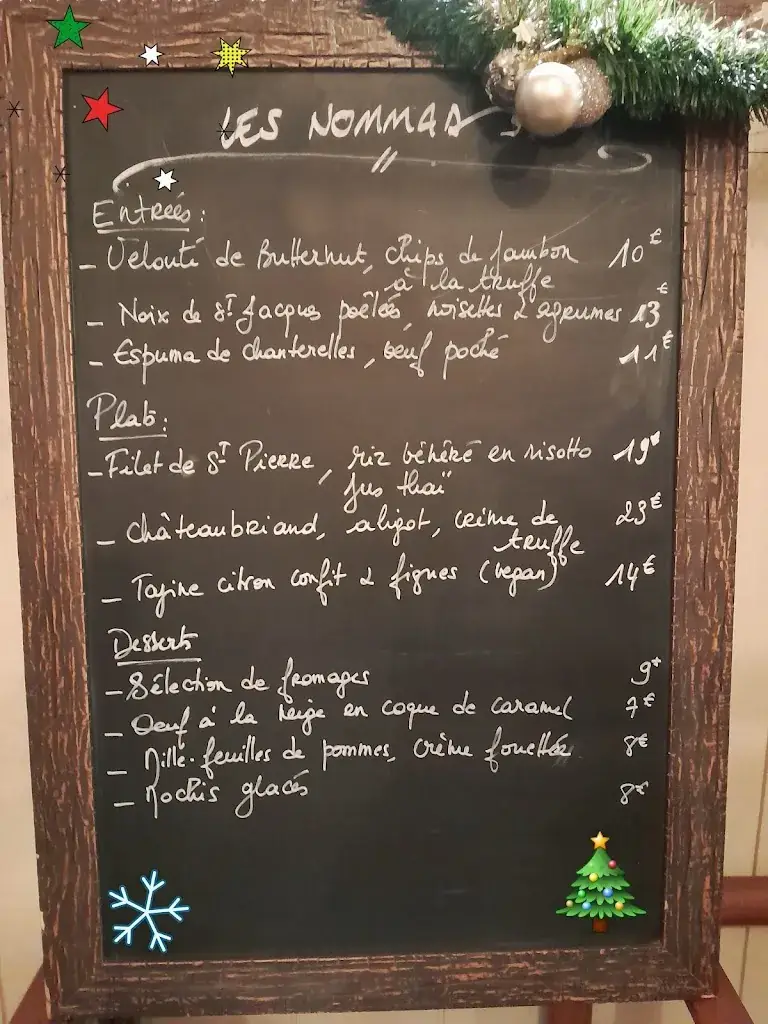 LES NOMMADS
Entrées :
- Velouté de Butternut, chips de jambon 10€
à la truffe
- Noix de St Jacques poêlées, noisettes & agrumes 13€
- Espuma de chanterelles, oeuf poché 11€
Plats :
- Filet de St Pierre, riz vénéré en risotto 19€
jus thaï
- Châteaubriand, aligot, crème de 23€
truffe
- Tajine citron confit & figues (vegan) 14€
Desserts
- Sélection de fromages 9€
- Oeuf à la neige en coque de caramel 7€
- Mille-feuilles de pommes, crème fouettée 8€
- Mochis glacés 8€